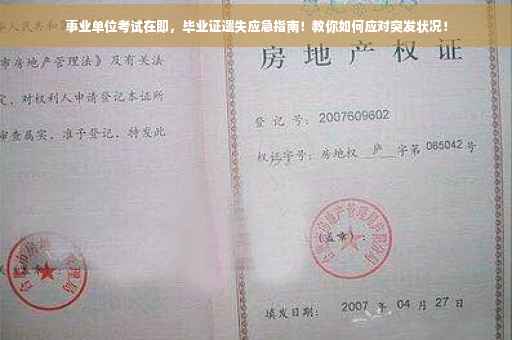 事业单位考试在即，毕业证遗失应急指南！教你如何应对突发状况！
人民共和
市房地产管理法》及有关法
定，对权利人申请登记本证所
审查属实，准予登记，特发此
房地产权证
登 记 号：2007609602
权证字号：房地权 庐 字第 065042 号
(盖章)：
填发日期： 2007 年 04 月 27 日